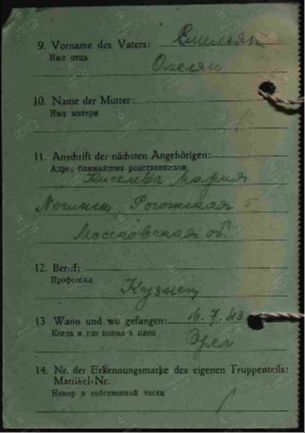 9. Vorname des Vaters: Емельян
Имя отца
Омелян
10. Name der Mutter:
Имя матери
11. Anschrift der nächsten Angehörigen:
Адрес ближайших родственников
Киселева Мария
Рогожская
Московская об.
12. Beruf:
Профессия
Кузнец
13 Wann und wo gefangen: 16.7.43
Когда и где попал в плен
Орел
14. Nr. der Erkennungsmarke des eigenen Truppenteils:
Matrikel-Nr.
Номер в собственной части